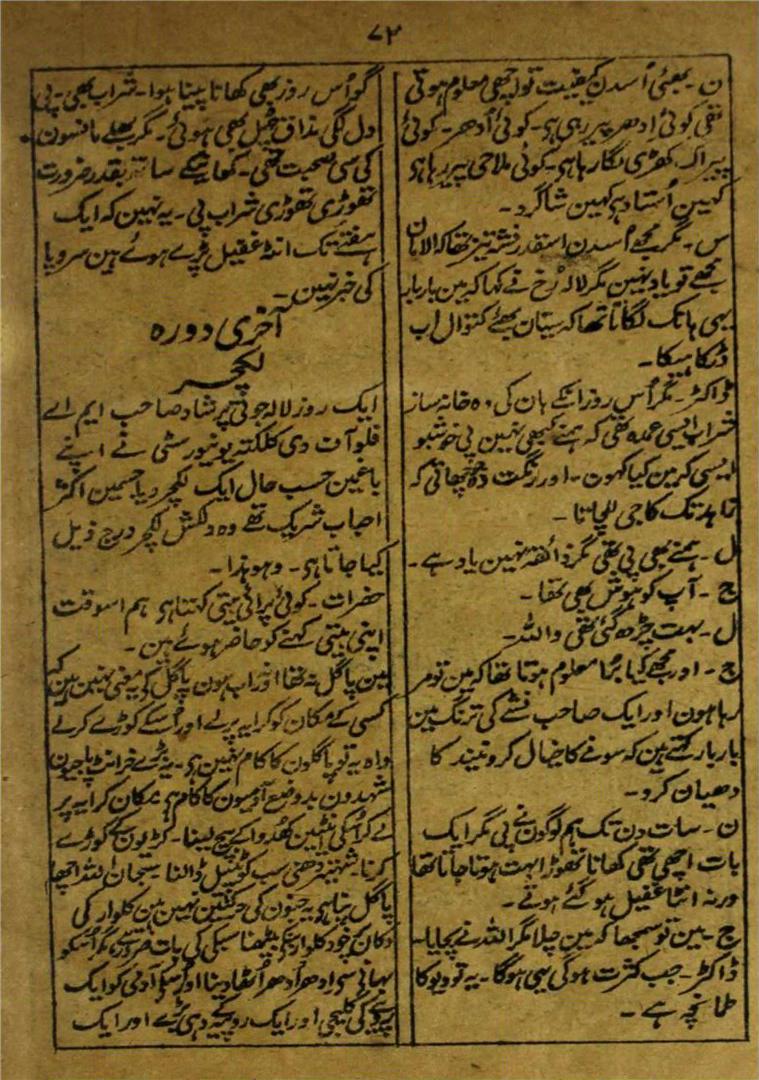 ۷۲
ن۔ بھئی اُسدن کیفیت تو اچھی معلوم ہوتی
تھی کوئی اِدھر پیر رہی ہی۔ کوئی اُدھر۔ کوئی
پیراک کھڑی لگا رہا ہی۔ کوئی ملاحی پیر رہا ہی
کہین اُستاد ہی کہین شاگرد۔
س۔ مگر مجھے اُسدن اسقدر نشہ تیز تھا کہ الامان
مجھے تو یاد نہین مگر لالہ رُخ نے کہا کہ مین بار بار
یہی ہانک لگاتا تھا کہ سیتان بھئے کتوال اب
ڈر کا ہیکا۔
ڈاکٹر۔ مگر اُس روز انکے ہان کی وہ خانہ ساز
شراب ایسی عمدہ تھی کہ ہمنے کبھی نہین پی خوشبو
ایسی کہ مین کیا کہون۔ اور رنگت وہ چہچہاتی کہ
زاہد تک کا جی للچاتا۔
ل۔ ہمنے بھی پی تھی مگر ذائقہ نہین یاد ہے۔
ج۔ آپ کو ہوش بھی تھا۔
ل۔ بہت چڑھ گئی تھی واللہ۔
ج۔ اور مجھے کیا بُرا معلوم ہوتا تھا کہ مین تو مر
رہا ہون اور ایک صاحب نشے کی ترنگ مین
بار بار کہتے ہین کہ سونے کا خیال کرو نیند کا
دھیان کرو۔
ن۔ سات دن تک ہم لوگون نے پی مگر ایک
بات اچھی تھی کھانا تھوڑا بہت ہوتا جاتا تھا
ورنہ انٹا غفیل ہو گئے ہوتے۔
ج۔ مین تو سمجھا کہ مین چلا مگر اللہ نے بچایا۔
ڈاکٹر۔ جب کثرت ہوگی یہی ہوگا۔ یہ تو دیو کا
طمانچہ ہے۔
گو اُس روز بھی کھانا پینا ہوا۔ شراب بھی پی
دل لگی مذاق چہل بھی ہوئی۔ مگر بھلے مانسون
کی سی صحبت تھی۔ کھانیکے ساتھ بقدر ضرورت
تھوڑی تھوڑی شراب پی۔ یہ نہین کہ ایک
ہفتے تک انٹا غفیل پڑے ہوئے ہین سر و پا
کی خبر نہین۔
آخری دورہ
لکچر
ایک روز لالہ جوتی پرشاد صاحب ایم اے
فلو آف دی کلکتہ یونیورسٹی نے اپنے
باغ مین حسب حال ایک لکچر دیا جسمین اکثر
احباب شریک تھے وہ دلکش لکچر درج ذیل
کیا جاتا ہی۔ وہوہذا۔
حضرات۔ کوئی پرائی بیتی کہتا ہی ہم اسوقت
اپنی بیتی کہنے کو حاضر ہوئے ہین۔
مین پاگل نہ تھا اور اب ہون پاگل کی یہ معنی نہین ہین کہ
کسی کے مکان کو کرایہ پر لے اور اُسکے کوڑے کر لے
واہ یہ تو پاگلون کا کام نہین ہی۔ یہ بڑے خرانٹ پاجیون
شہدون بد وضع آدمیون کا کام ہی مکان کرایہ پر
لے کر اُسکی اینٹین کھدوا کے بیچ لینا۔ کڑیون کے کوڑے
کرنا۔ شہتیر دھنی سب کو ڈالنا سبحان اللہ اچھا
پاگل بنا ہی یہ جنون کی حرکتین نہین ہین کلوار کی
دکان پر خود کلوار بنکے بیٹھنا سبکی کی بات ضرور ہے مگر اُسکو
بہانی سی اِدھر اُدھر اُٹھا دینا اور اُسکے آدمی کو ایک
پیسے کی کلیجی اور ایک روپیہ دہی بڑے اور ایک